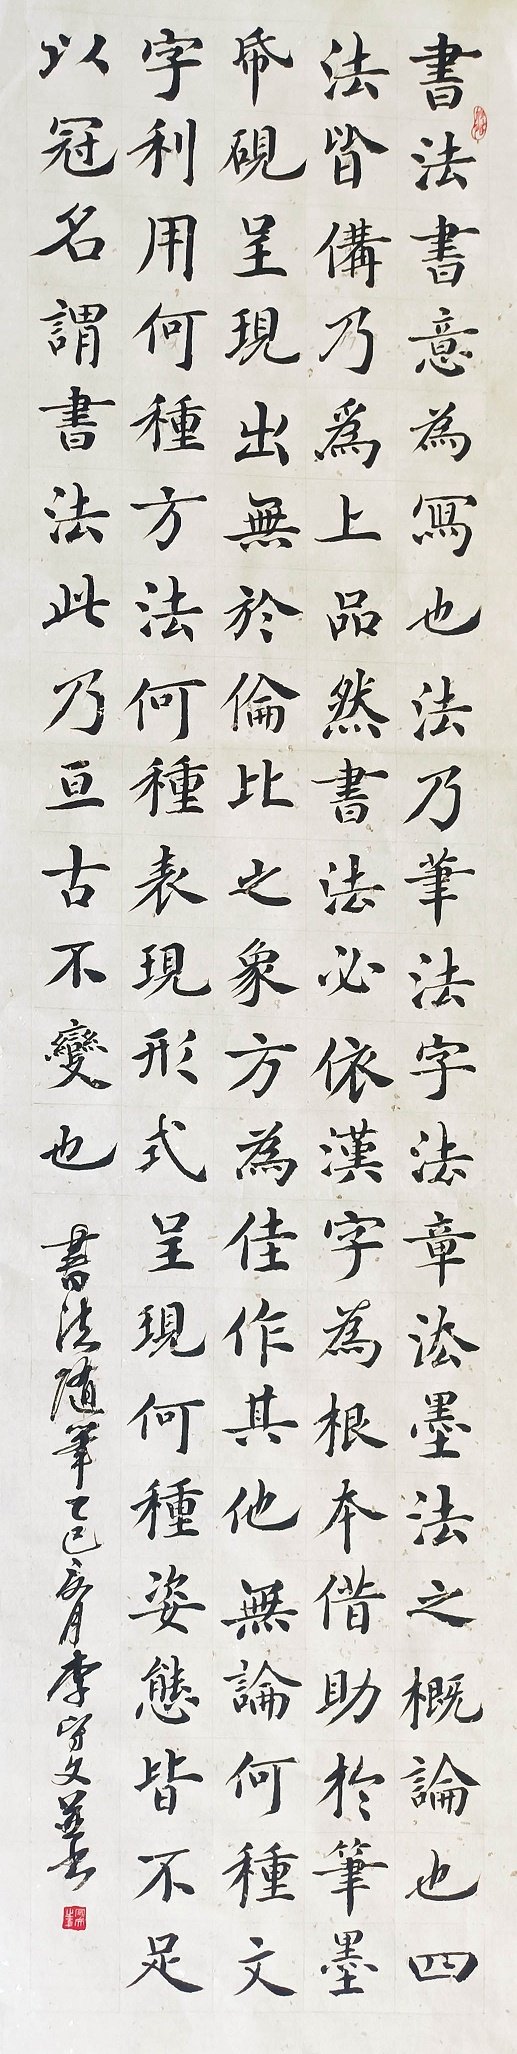 書法書意為寫也法乃筆法字法章法墨法之概論也四
法皆備乃為上品然書法必依漢字為根本借助於筆墨
帋硯呈現出無於倫比之象方為佳作其他無論何種文
字利用何種方法何種表現形式呈現何種姿態皆不足
以冠名謂書法此乃亘古不變也
書法隨筆乙巳亥月李守文並書